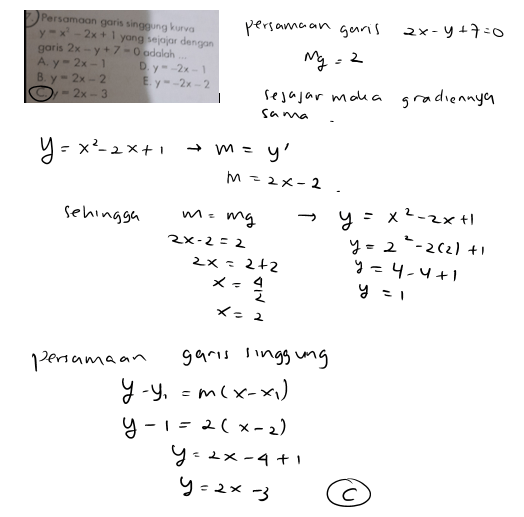 Persamaan garis singgung kurva
y = x² - 2x + 1 yang sejajar dengan
garis 2x - y + 7 = 0 adalah ...
A. y = 2x - 1 D. y = -2x - 1
B. y = 2x - 2 E. y = -2x - 2
C. y = 2x - 3
persamaan garis 2x - y + 7 = 0
Mg = 2
sejajar maka gradiennya
sama.
y = x² - 2x + 1 → m = y'
m = 2x - 2.
Sehingga m = mg → y = x² - 2x + 1
2x - 2 = 2 y = 2² - 2(2) + 1
2x = 2 + 2 y = 4 - 4 + 1
x = 4/2 y = 1
x = 2
persamaan garis singgung
y - y₁ = m(x - x₁)
y - 1 = 2(x - 2)
y = 2x - 4 + 1
y = 2x - 3 C